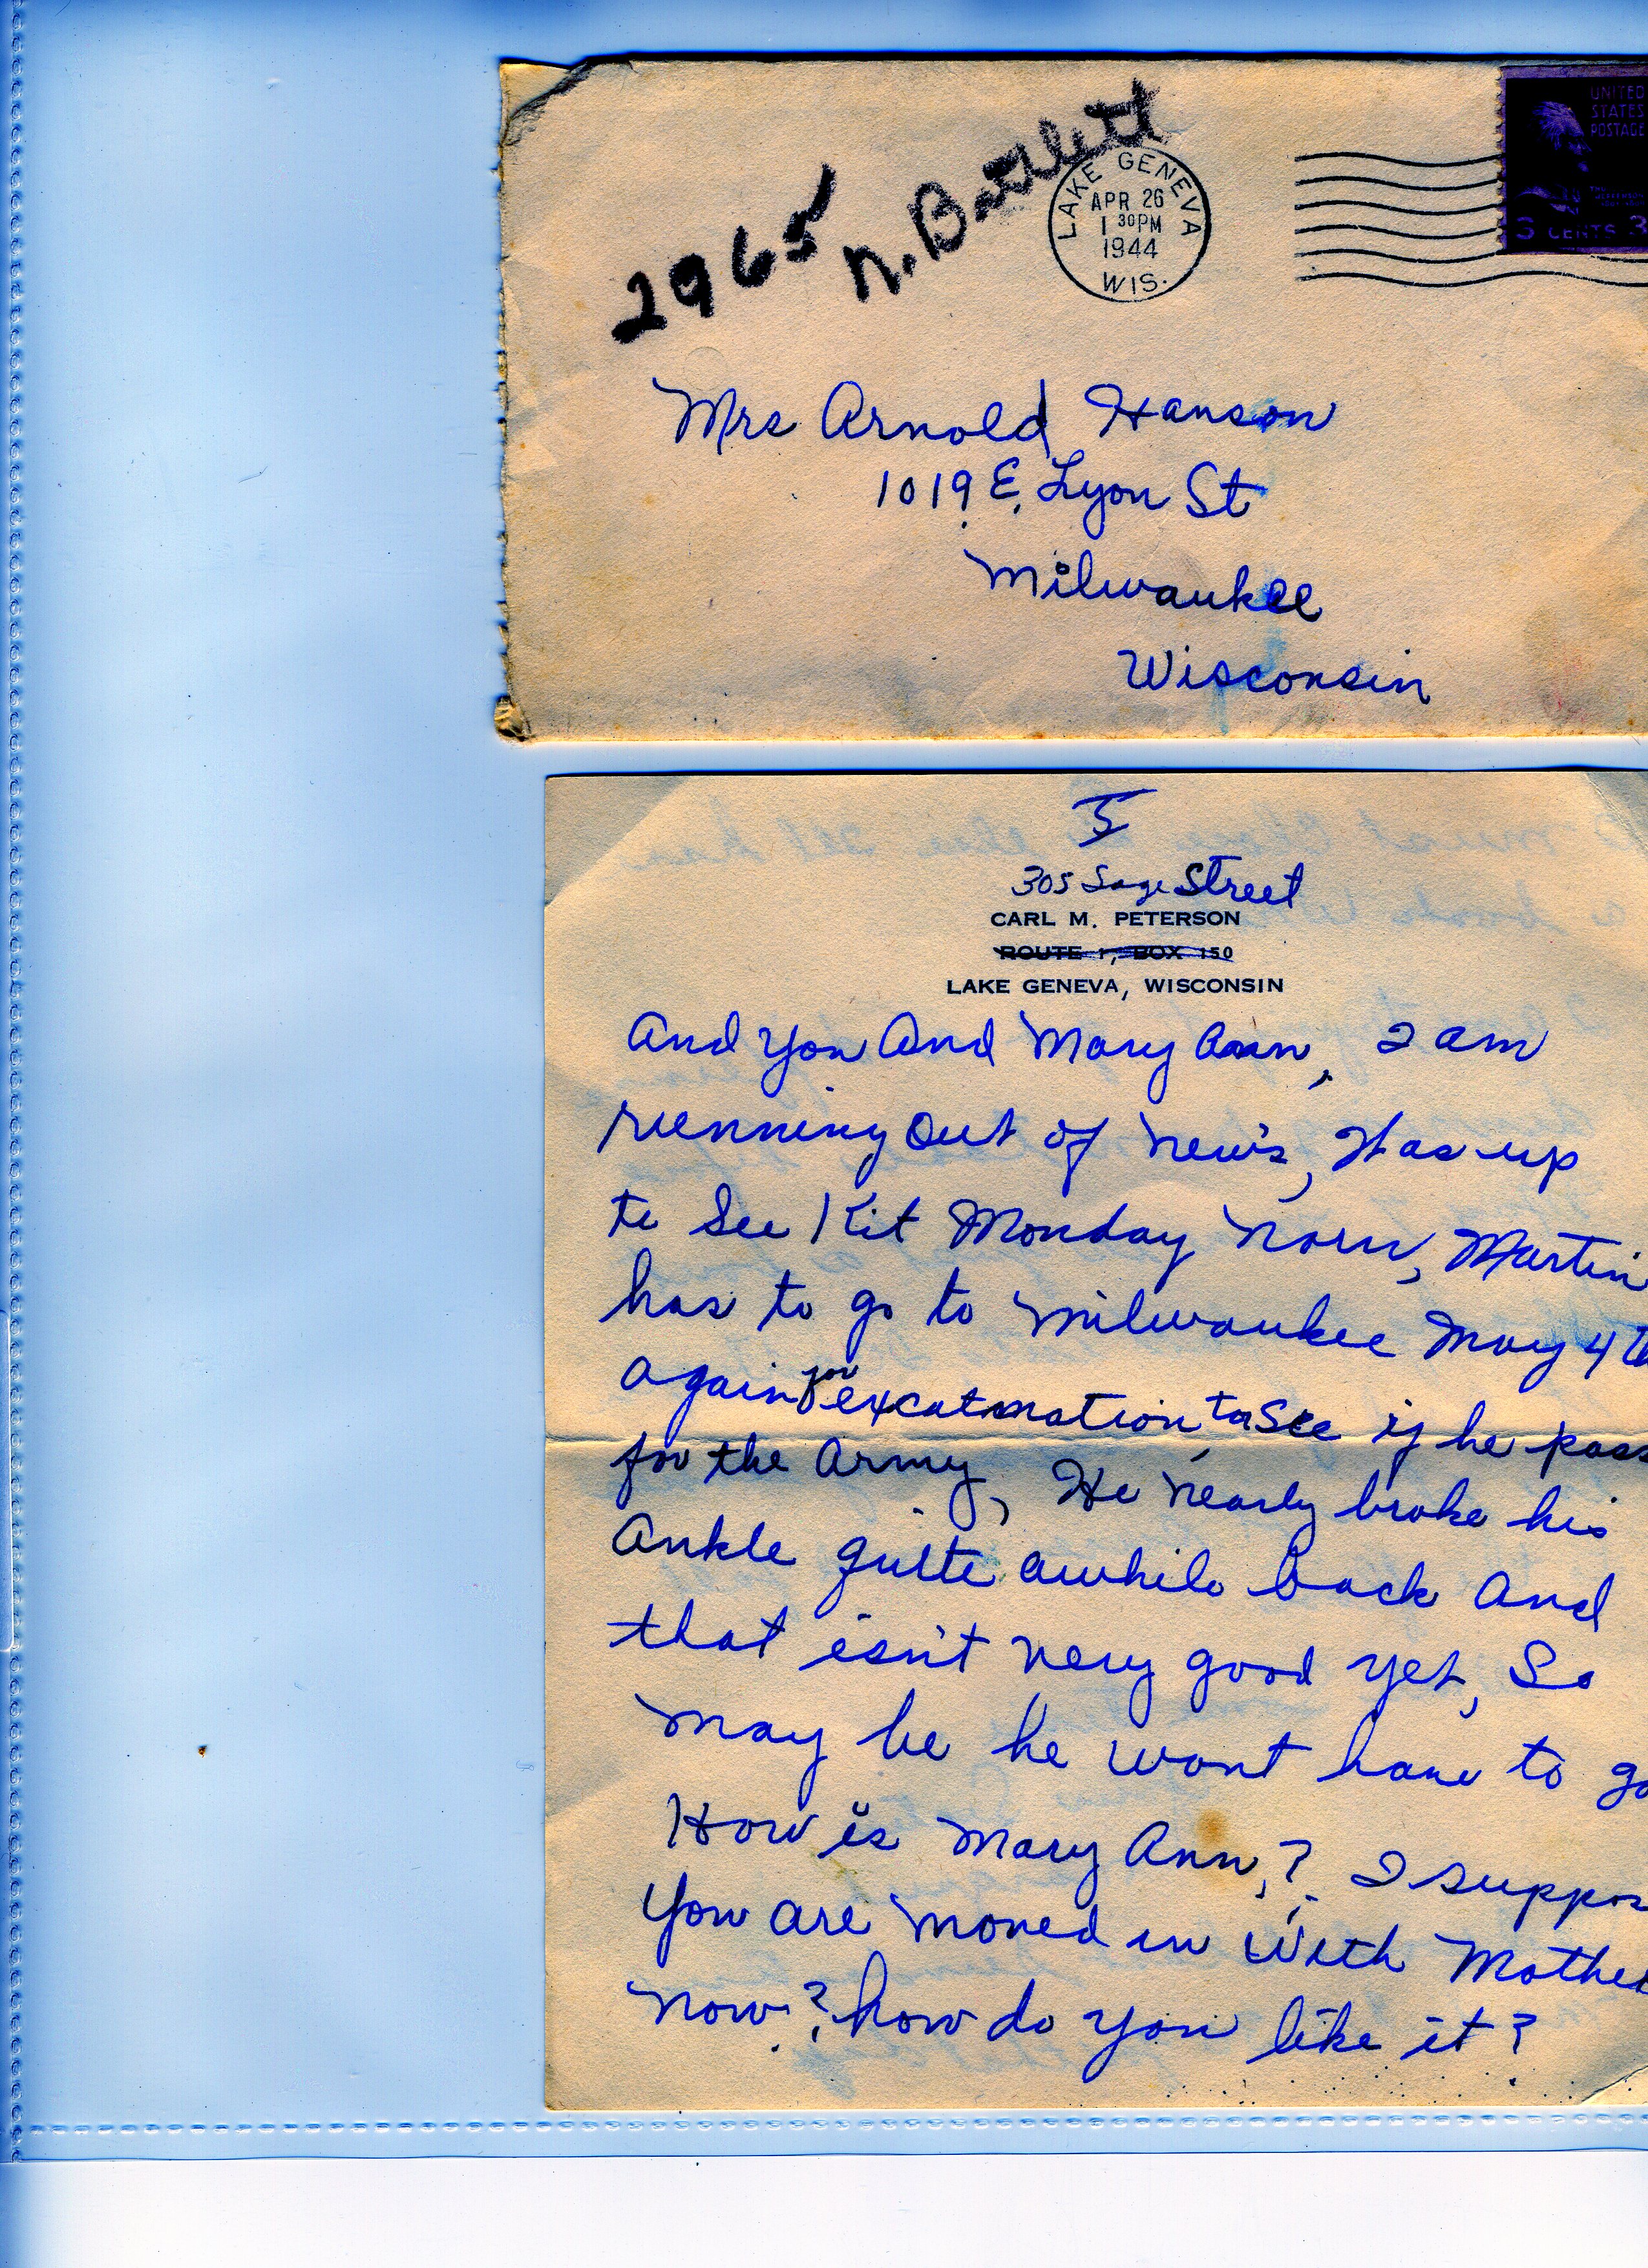 2965
N. Bartlett
LAKE GENEVA
APR 26
1 30PM
1944
WIS.
UNITED
STATES
POSTAGE
3 CENTS 3
Mrs Arnold Hanson
1019 E. Lyon St
Milwaukee
Wisconsin
5
305 Sage Street
CARL M. PETERSON
ROUTE 1, BOX 150
LAKE GENEVA, WISCONSIN
And You And Mary Ann, I am
running out of news, Was up
to See Kit Monday Morn, Martin
has to go to Milwaukee May 4th
again for excatmation to See if he pass
for the Army, He nearly broke his
Ankle quite awhile back And
that isn't very good yet, So
may be he wont have to go
How is Mary Ann,? I suppos
You are moved in With Mother
now? how do you like it?